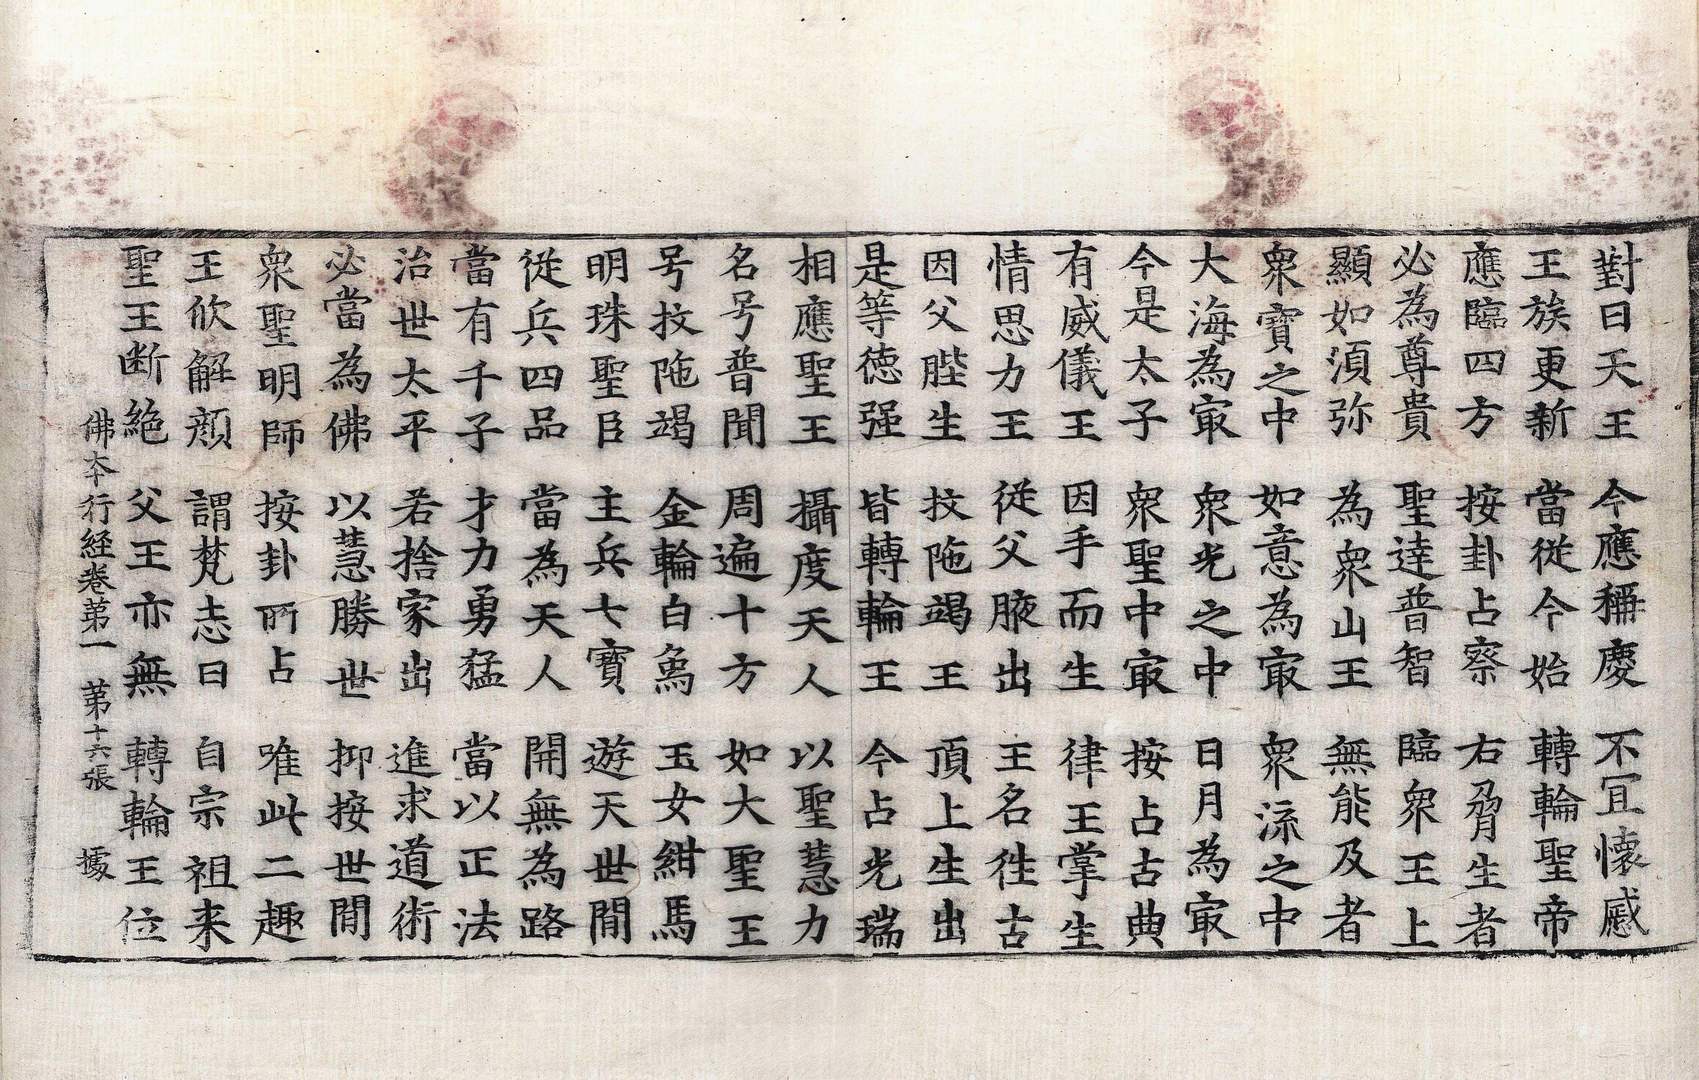 對曰天王　今應稱慶　不冝懷慼
王族更新　當從今始　轉輪聖帝
應臨四方　按卦占察　右脅生者
必為尊貴　聖達普智　臨衆王上
顯如湏弥　為衆山王　無能及者
衆寶之中　如意為㝡　衆流之中
大海為㝡　衆光之中　日月為㝡
今是太子　衆聖中㝡　按占古典
有威儀王　因手而生　律王掌生
情思力王　從父腋出　王名徃古
因父髀生　抆陁竭王　頂上生出
是等徳强　皆轉輪王　今占光瑞
相應聖王　攝度天人　以聖慧力
名号普聞　周遍十方　如大聖王
号抆陁竭　金輪白烏　玉女紺馬
明珠聖臣　主兵七寶　遊天世間
從兵四品　當為天人　開無為路
當有千子　才力勇猛　當以正法
治世太平　若捨家出　進求道術
必當為佛　以慧勝世　抑按世間
衆聖明師　按卦所占　唯此二趣
王攸解顔　謂梵志曰　自宗祖来
聖王断絶　父王亦無　轉輪王位
佛夲行經卷第一　第十六張　據